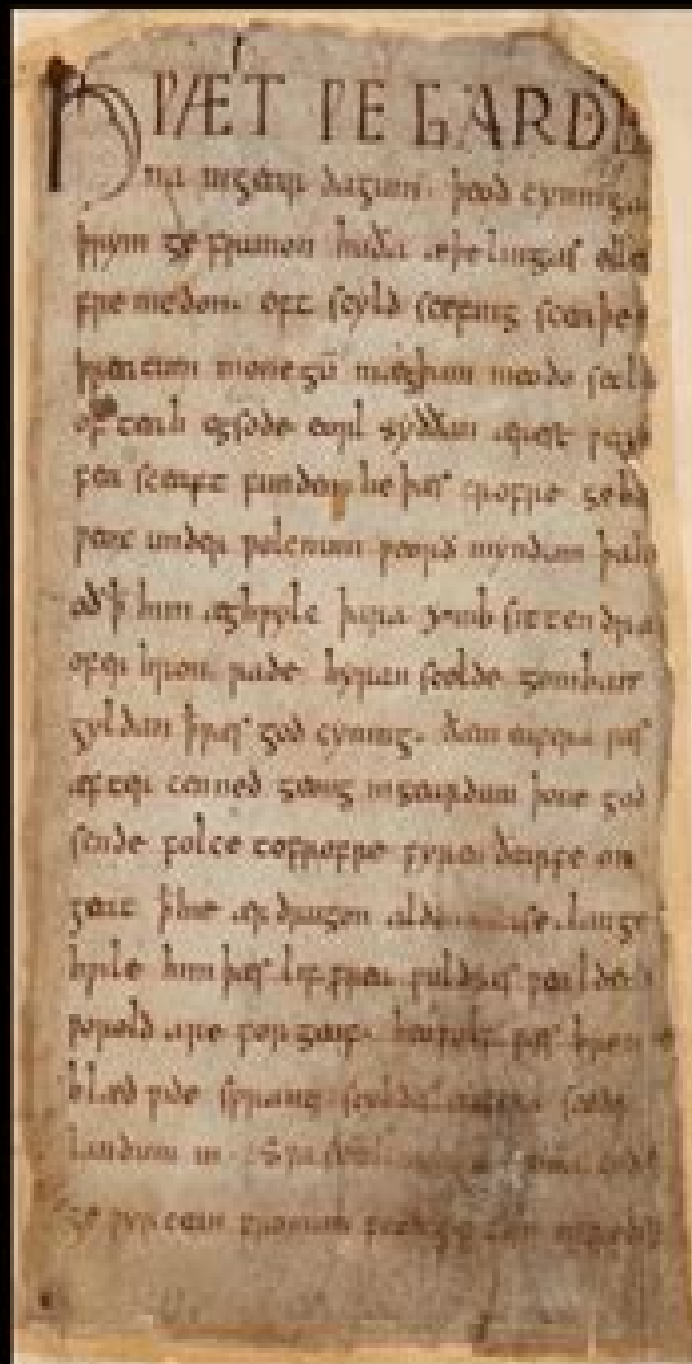 HǷÆT ǷE GARDE
na ingear dagum. þeod cyninga
þrym ge frunon huða æþelingas elle
fre medon. oft scyld scefing sceaþe
þreatum monegū mægþum meodo setl
of teah egsode eorl syððan ærest ƿear
fea sceaft funden heþæs frofre geba
ƿeox under ƿolcnum ƿeorð myndum þah
oð ꝥ him æghƿylc þara ymb sittendra
ofer hron rade hyran scolde gomban
gyldan ꝥ ƿæs god cyning. ðæm eafera ƿæs
æfter cenned geong ingeardum þone god
sende folce tofrofre fyren ðearfe on
geat ꝥ hie ær drugon aldor ase. lange
hƿile him þæs lif frea ƿuldres ƿealdend
ƿorold are for geaf. beoƿulf ƿæs breme
blæd ƿide sprang scyldes eafera scede
landum in
ge ƿyrcean fromum